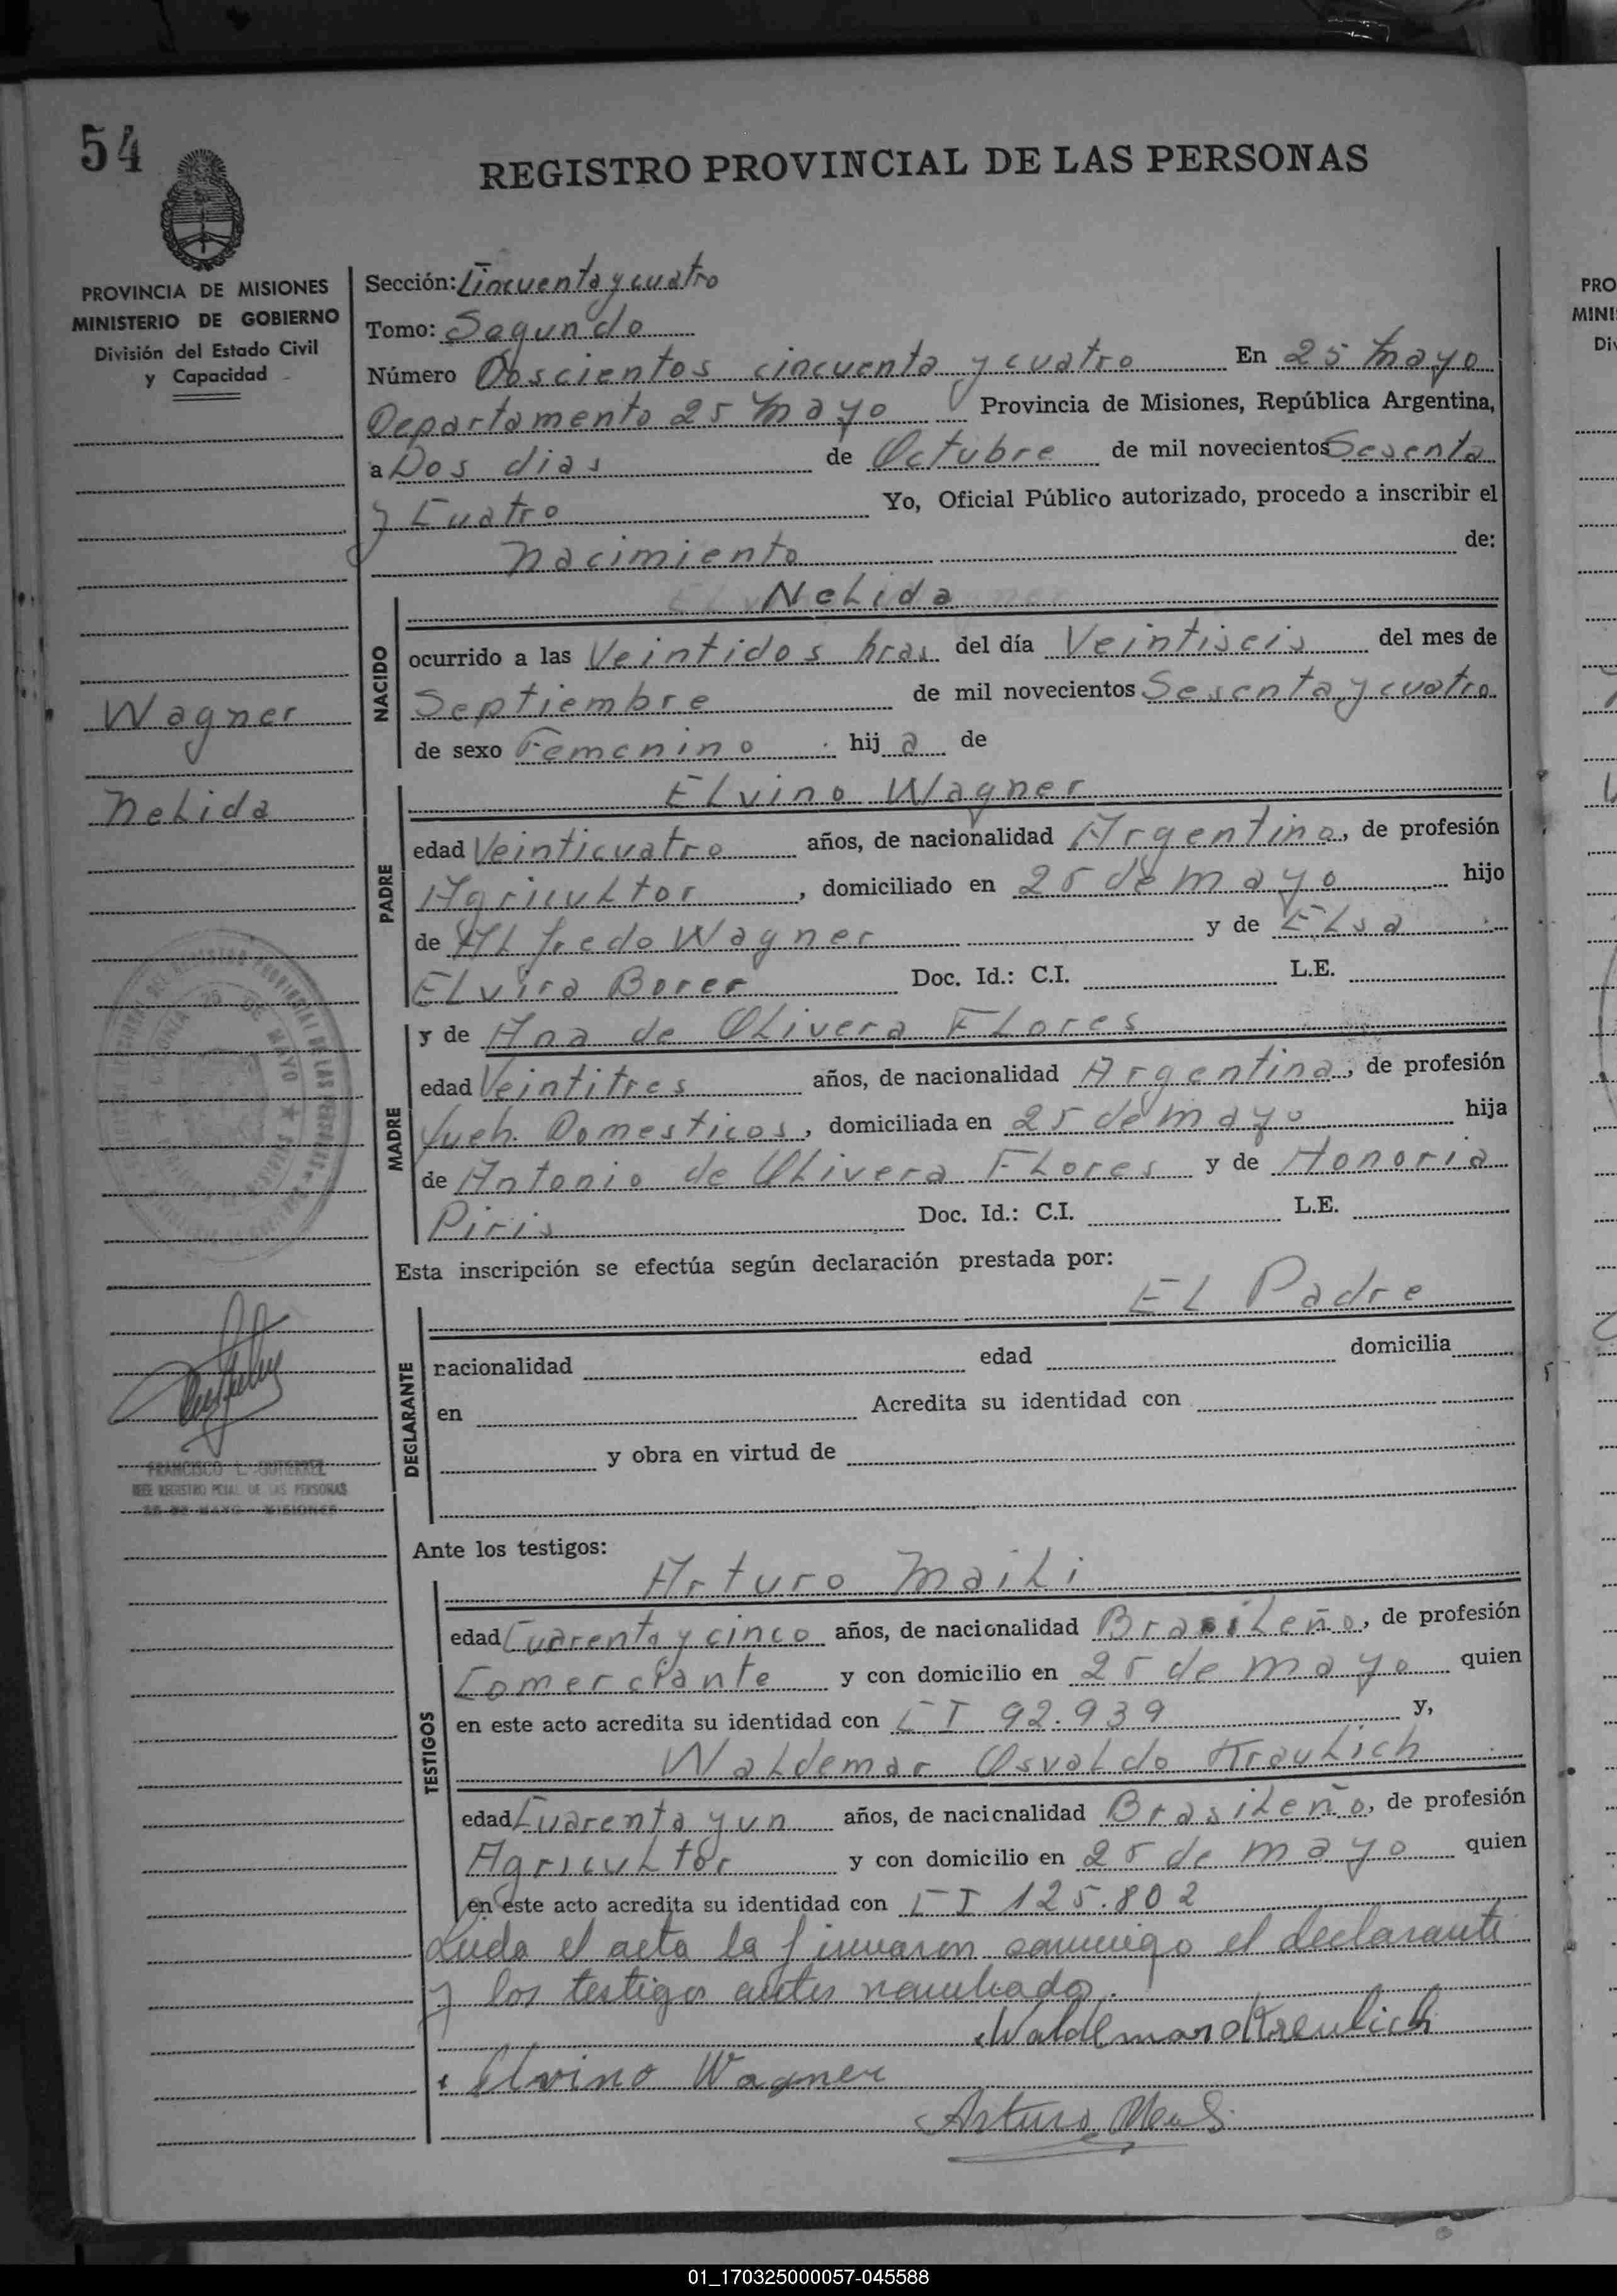 54
REGISTRO PROVINCIAL DE LAS PERSONAS
PROVINCIA DE MISIONES
MINISTERIO DE GOBIERNO
División del Estado Civil
y Capacidad
Wagner
Nelida
FRANCISCO L. GUTIERREZ
JEFE REGISTRO PCIAL DE LAS PERSONAS
25 DE MAYO - MISIONES
Sección: Cincuenta y cuatro
Tomo: Segundo
Número Doscientos cincuenta y cuatro En 25 Mayo
Departamento 25 Mayo Provincia de Misiones, República Argentina,
a Dos dias de Octubre de mil novecientos Sesenta
y Cuatro Yo, Oficial Público autorizado, procedo a inscribir el
Nacimiento de:
Nelida
NACIDO
ocurrido a las Veintidos hras del día Veintiseis del mes de
Septiembre de mil novecientos Sesenta y cuatro
de sexo Femenino hij a de
Elvino Wagner
PADRE
edad Veinticuatro años, de nacionalidad Argentina, de profesión
Agricultor, domiciliado en 25 de Mayo hijo
de Alfredo Wagner y de Elsa
Elvira Borer Doc. Id.: C.I. L.E.
y de Ana de Olivera Flores
MADRE
edad Veintitres años, de nacionalidad Argentina, de profesión
Queh. Domesticos, domiciliada en 25 de Mayo hija
de Antonio de Olivera Flores y de Honoria
Piris Doc. Id.: C.I. L.E.
Esta inscripción se efectúa según declaración prestada por:
El Padre
DECLARANTE
nacionalidad edad domicilia
en Acredita su identidad con
y obra en virtud de
Ante los testigos:
Arturo Maili
TESTIGOS
edad Cuarenta y cinco años, de nacionalidad Brasileño, de profesión
Comerciante y con domicilio en 25 de Mayo quien
en este acto acredita su identidad con CI 92.939 y,
Waldemar Osvaldo Kraulich
edad Cuarenta y un años, de nacionalidad Brasileño, de profesión
Agricultor y con domicilio en 25 de Mayo quien
en este acto acredita su identidad con CI 125.802
Leida el acta la firmaron conmigo el declarante
y los testigos antes nombrados.
Waldemar O Kreulich
Elvino Wagner
Arturo
PRO
MINI
Di
01_170325000057-045588